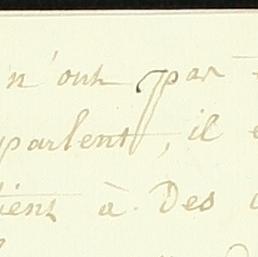 n'ont par
parlent, il
tient à Des